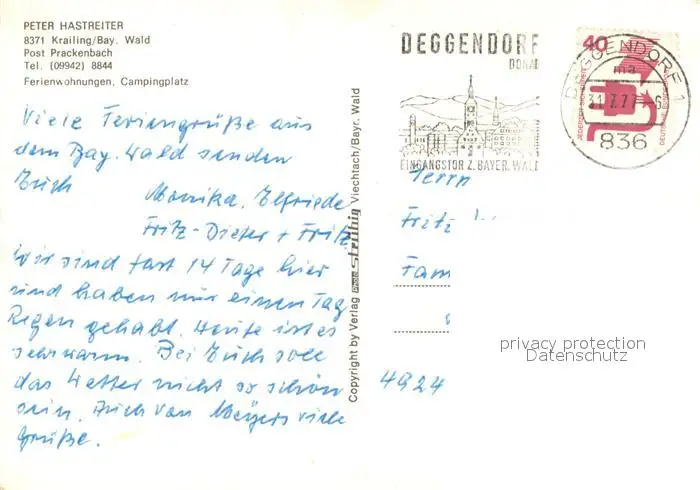 PETER HASTREITER
8371 Krailing/Bay. Wald
Post Prackenbach
Tel. (09942) 8844
Ferienwohnungen, Campingplatz
Viele Feriengrüße aus
dem Bay. Wald senden
Euch
Monika, Elfriede
Fritz-Dieter + Fritz
Wir sind fast 14 Tage hier
und haben nur einen Tag
Regen gehabt. Heute ist es
sehr warm. Bei Euch soll
das Wetter nicht so schön
sein. Auch von Meyers viele
Grüße.
Copyright by Verlag Strühig Viechtach/Bayr. Wald
DEGGENDORF
DONAU
EINGANGSTOR Z. BAYER. WALD
40
JEDERZEIT SICHERHEIT
DEUTSCHE BUNDESPOST
DEGGENDORF 1
ma
31.7.77
836
Herrn
Fritz
Fam
4924
privacy protection
Datenschutz